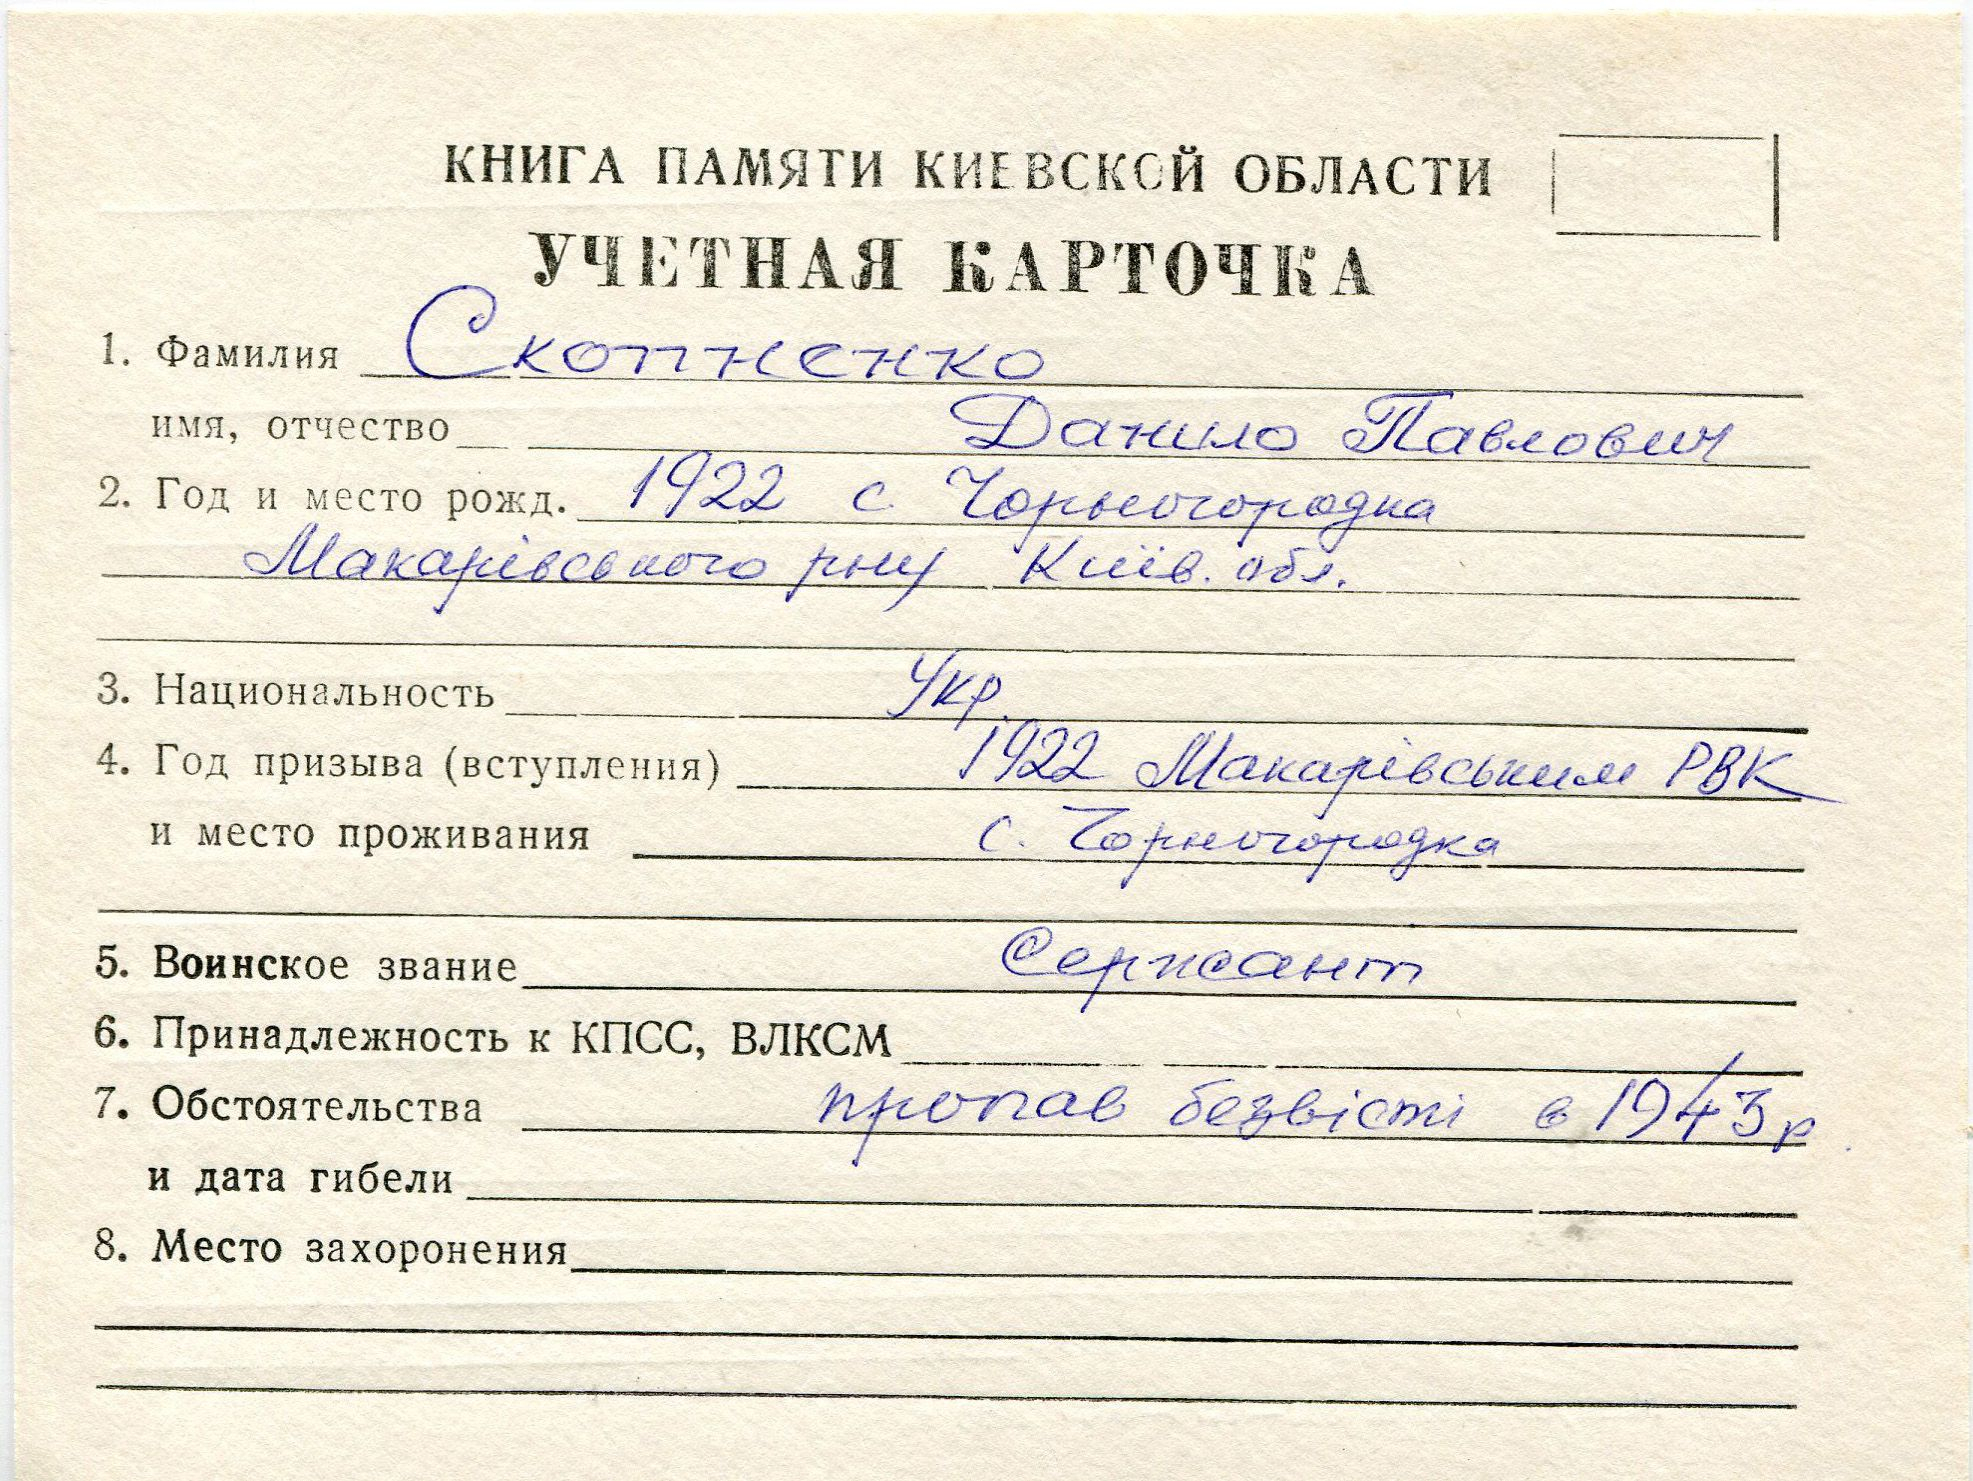 КНИГА ПАМЯТИ КИЕВСКОЙ ОБЛАСТИ
УЧЕТНАЯ КАРТОЧКА
1. Фамилия Скопненко
имя, отчество Данило Павлович
2. Год и место рожд. 1922 с. Чорногородка
Макарівського р-ну Київ. обл.
3. Национальность Укр.
4. Год призыва (вступления) 1922 Макарівським РВК
и место проживания с. Чорногородка
5. Воинское звание Сержант
6. Принадлежность к КПСС, ВЛКСМ
7. Обстоятельства пропав безвісті в 1943 р.
и дата гибели
8. Место захоронения